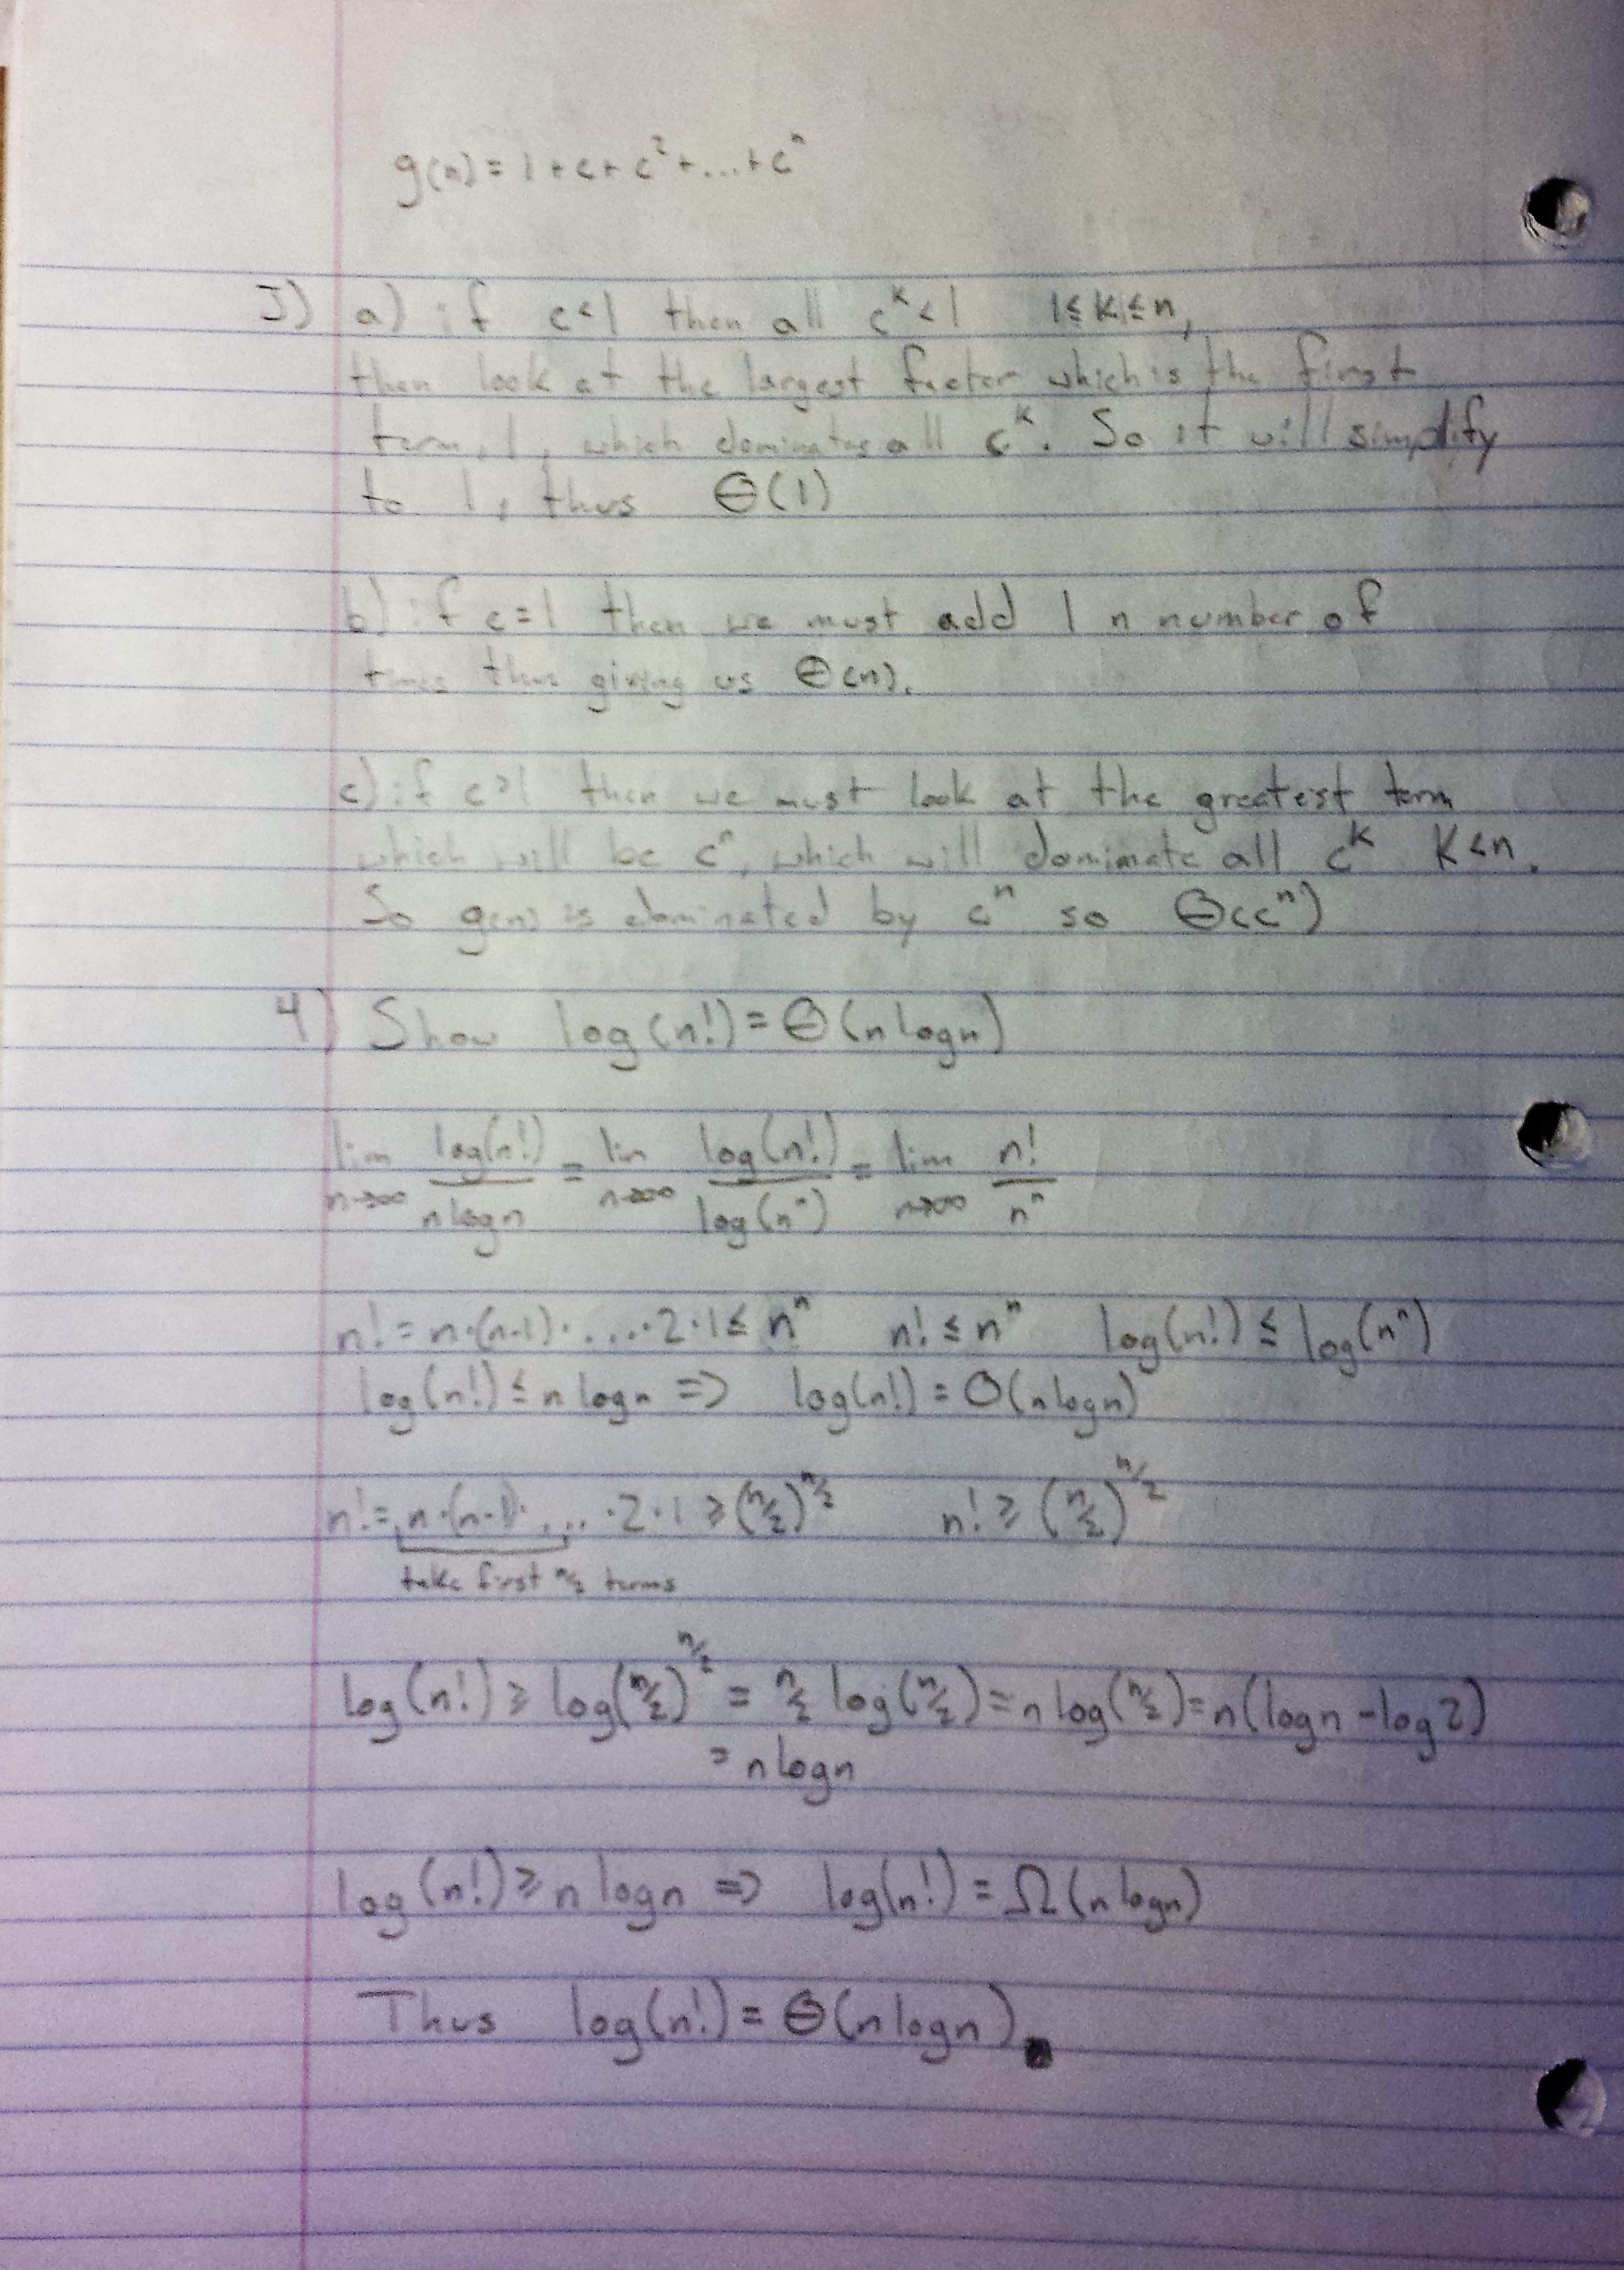 g(n) = 1 + c + c² + ... + cⁿ
3) a) if c<1 then all cᵏ<1 1≤k≤n,
then look at the largest factor which is the first
term, 1, which dominates all cᵏ. So it will simplify
to 1, thus Θ(1)
b) if c=1 then we must add 1 n number of
times thus giving us Θ(n).
c) if c>1 then we must look at the greatest term
which will be cⁿ, which will dominate all cᵏ k<n.
So g(n) is dominated by cⁿ so Θ(cⁿ)
4) Show log(n!) = Θ(n log n)
lim n→∞ log(n!)/n log n = lim n→∞ log(n!)/log(nⁿ) = lim n→∞ n!/nⁿ
n! = n·(n-1)· ... ·2·1 ≤ nⁿ n! ≤ nⁿ log(n!) ≤ log(nⁿ)
log(n!) ≤ n log n => log(n!) = O(n log n)
n! = n·(n-1)· ... ·2·1 ≥ (n/2)^n/2 n! ≥ (n/2)^n/2
take first n/2 terms
log(n!) ≥ log(n/2)^n/2 = n/2 log(n/2) = n log(n/2) = n(log n - log 2)
= n log n
log(n!) ≥ n log n => log(n!) = Ω(n log n)
Thus log(n!) = Θ(n log n) ■